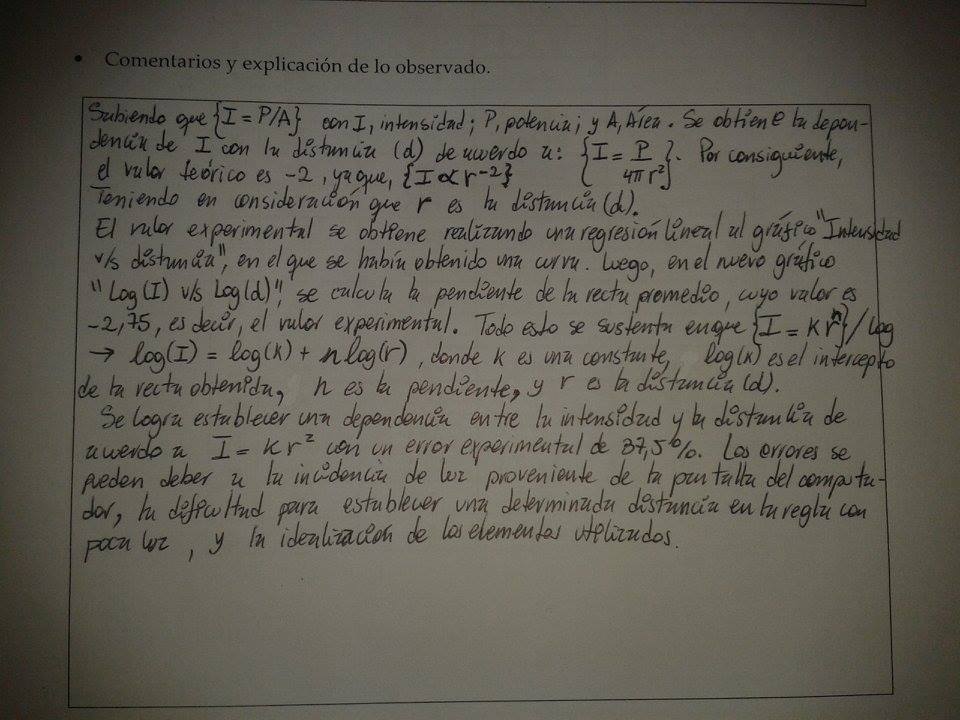 • Comentarios y explicación de lo observado.
Sabiendo que {I = P/A} con I, intensidad; P, potencia; y A, Área. Se obtiene la depen-
dencia de I con la distancia (d) de acuerdo a: {I = P/4πr²}. Por consiguiente,
el valor teórico es -2, ya que, {I ∝ r⁻²}
Teniendo en consideración que r es la distancia (d).
El valor experimental se obtiene realizando una regresión lineal al gráfico "Intensidad
v/s distancia", en el que se había obtenido una curva. Luego, en el nuevo gráfico
"Log(I) v/s Log(d)", se calcula la pendiente de la recta promedio, cuyo valor es
-2,75, es decir, el valor experimental. Todo esto se sustenta en que {I = K rⁿ} / log
→ log(I) = log(K) + n log(r), donde K es una constante, log(K) es el intercepto
de la recta obtenida, n es la pendiente, y r es la distancia (d).
Se logra establecer una dependencia entre la intensidad y la distancia de
acuerdo a I = K r² con un error experimental de 37,5%. Los errores se
pueden deber a la incidencia de luz proveniente de la pantalla del computa-
dor, la dificultad para establecer una determinada distancia en la regla con
poca luz, y la idealización de los elementos utilizados.